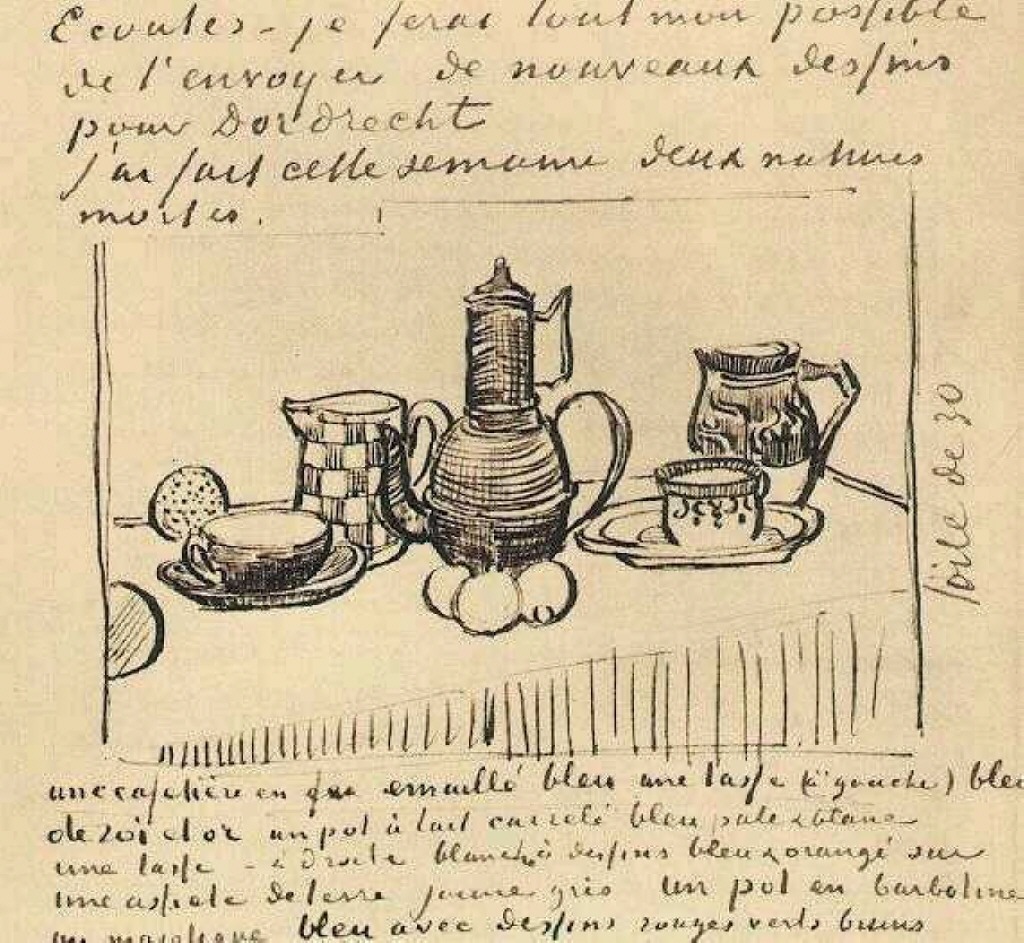 Ecoutes - je ferai tout mon possible
de t'envoyer de nouveaux dessins
pour Dordrecht
j'ai fait cette semaine deux natures
mortes.
Toile de 30
une cafetière en fer emaillé bleu une tasse (à gauche) bleu
de roi et or un pot à lait carrelé bleu pale & blanc
une tasse - à droite blanche à dessins bleu & orangé sur
une assiete de terre jaune gris un pot en barbotine
ou majolique bleu avec dessins rouges verts bruns